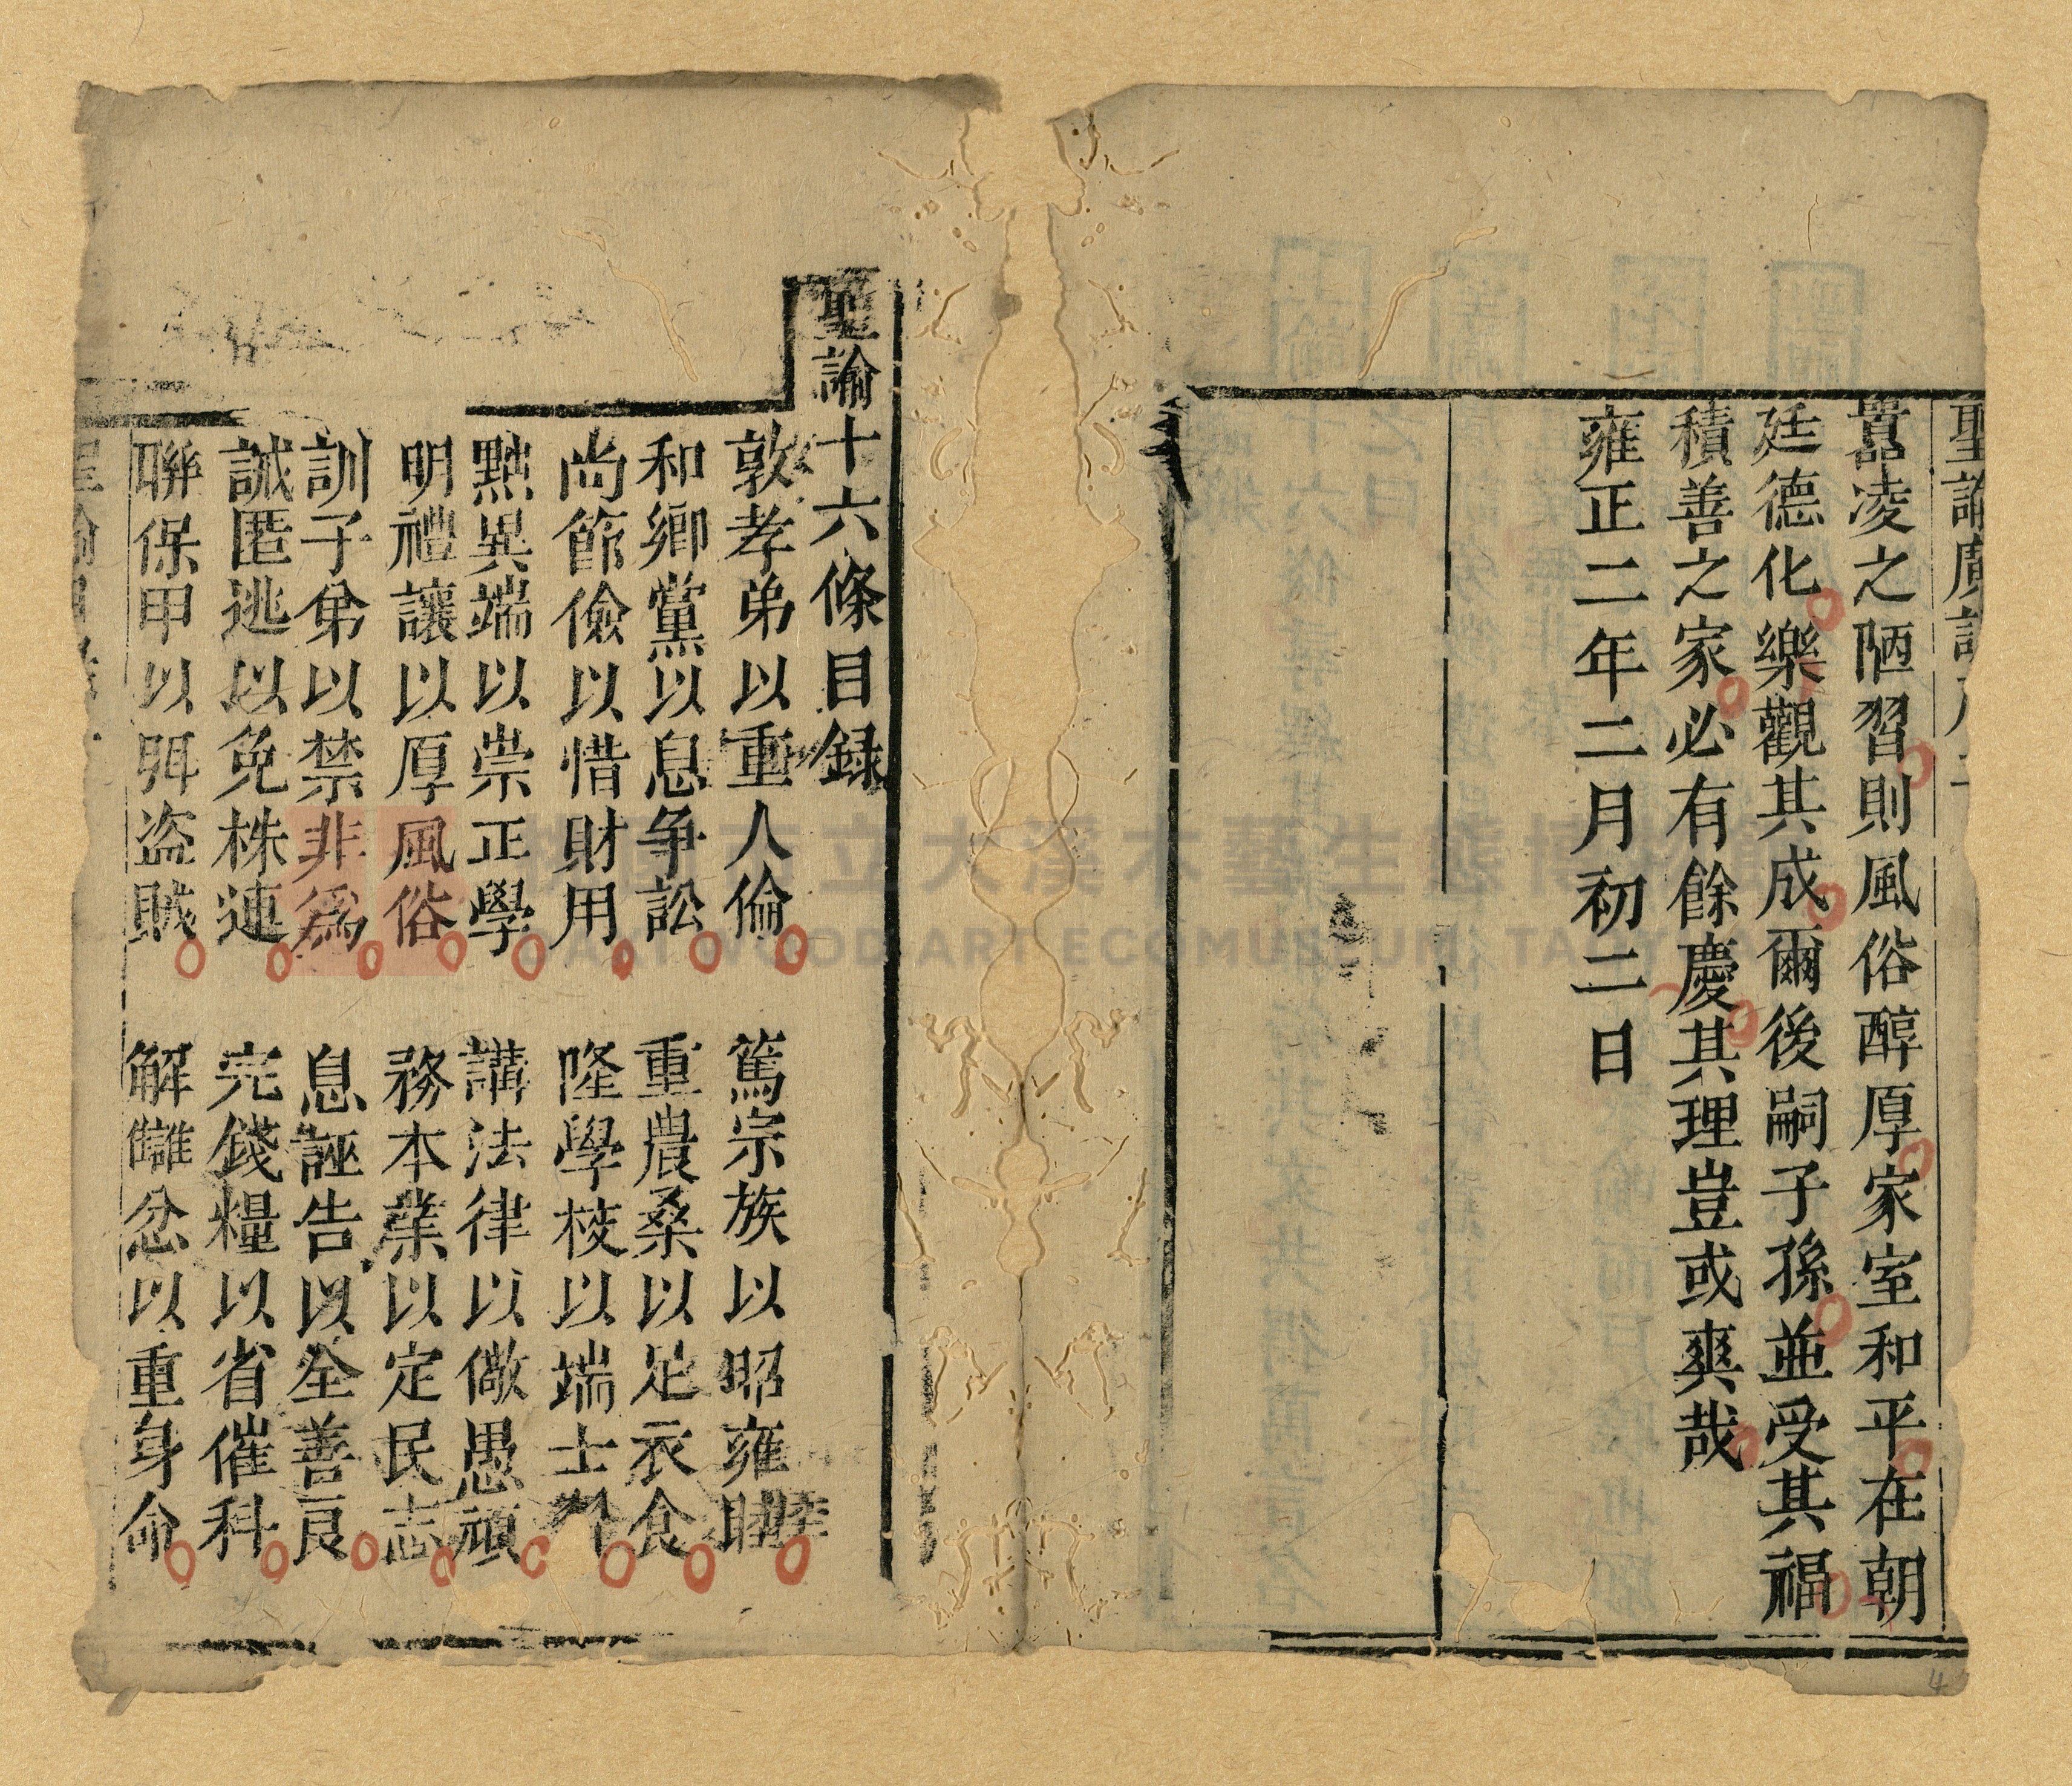 聖諭廣訓
囂凌之陋習則風俗醇厚家室和平在朝
廷德化樂觀其成爾後嗣子孫並受其福
積善之家必有餘慶其理豈或爽哉
雍正二年二月初二日
聖諭十六條目録
敦孝弟以重人倫 篤宗族以昭雍睦
和鄉黨以息争訟 重農桑以足衣食
尚節儉以惜財用 隆學校以端士
黜異端以崇正學 講法律以儆愚頑
明禮讓以厚風俗 務本業以定民志
訓子弟以禁非為 息誣告以全善良
誡匿逃以免株連 完錢糧以省催科
聯保甲以弭盗賊 解讎忿以重身命
大溪木藝生態博
DAXI WOOD ART ECOMUSEUM, TA
4